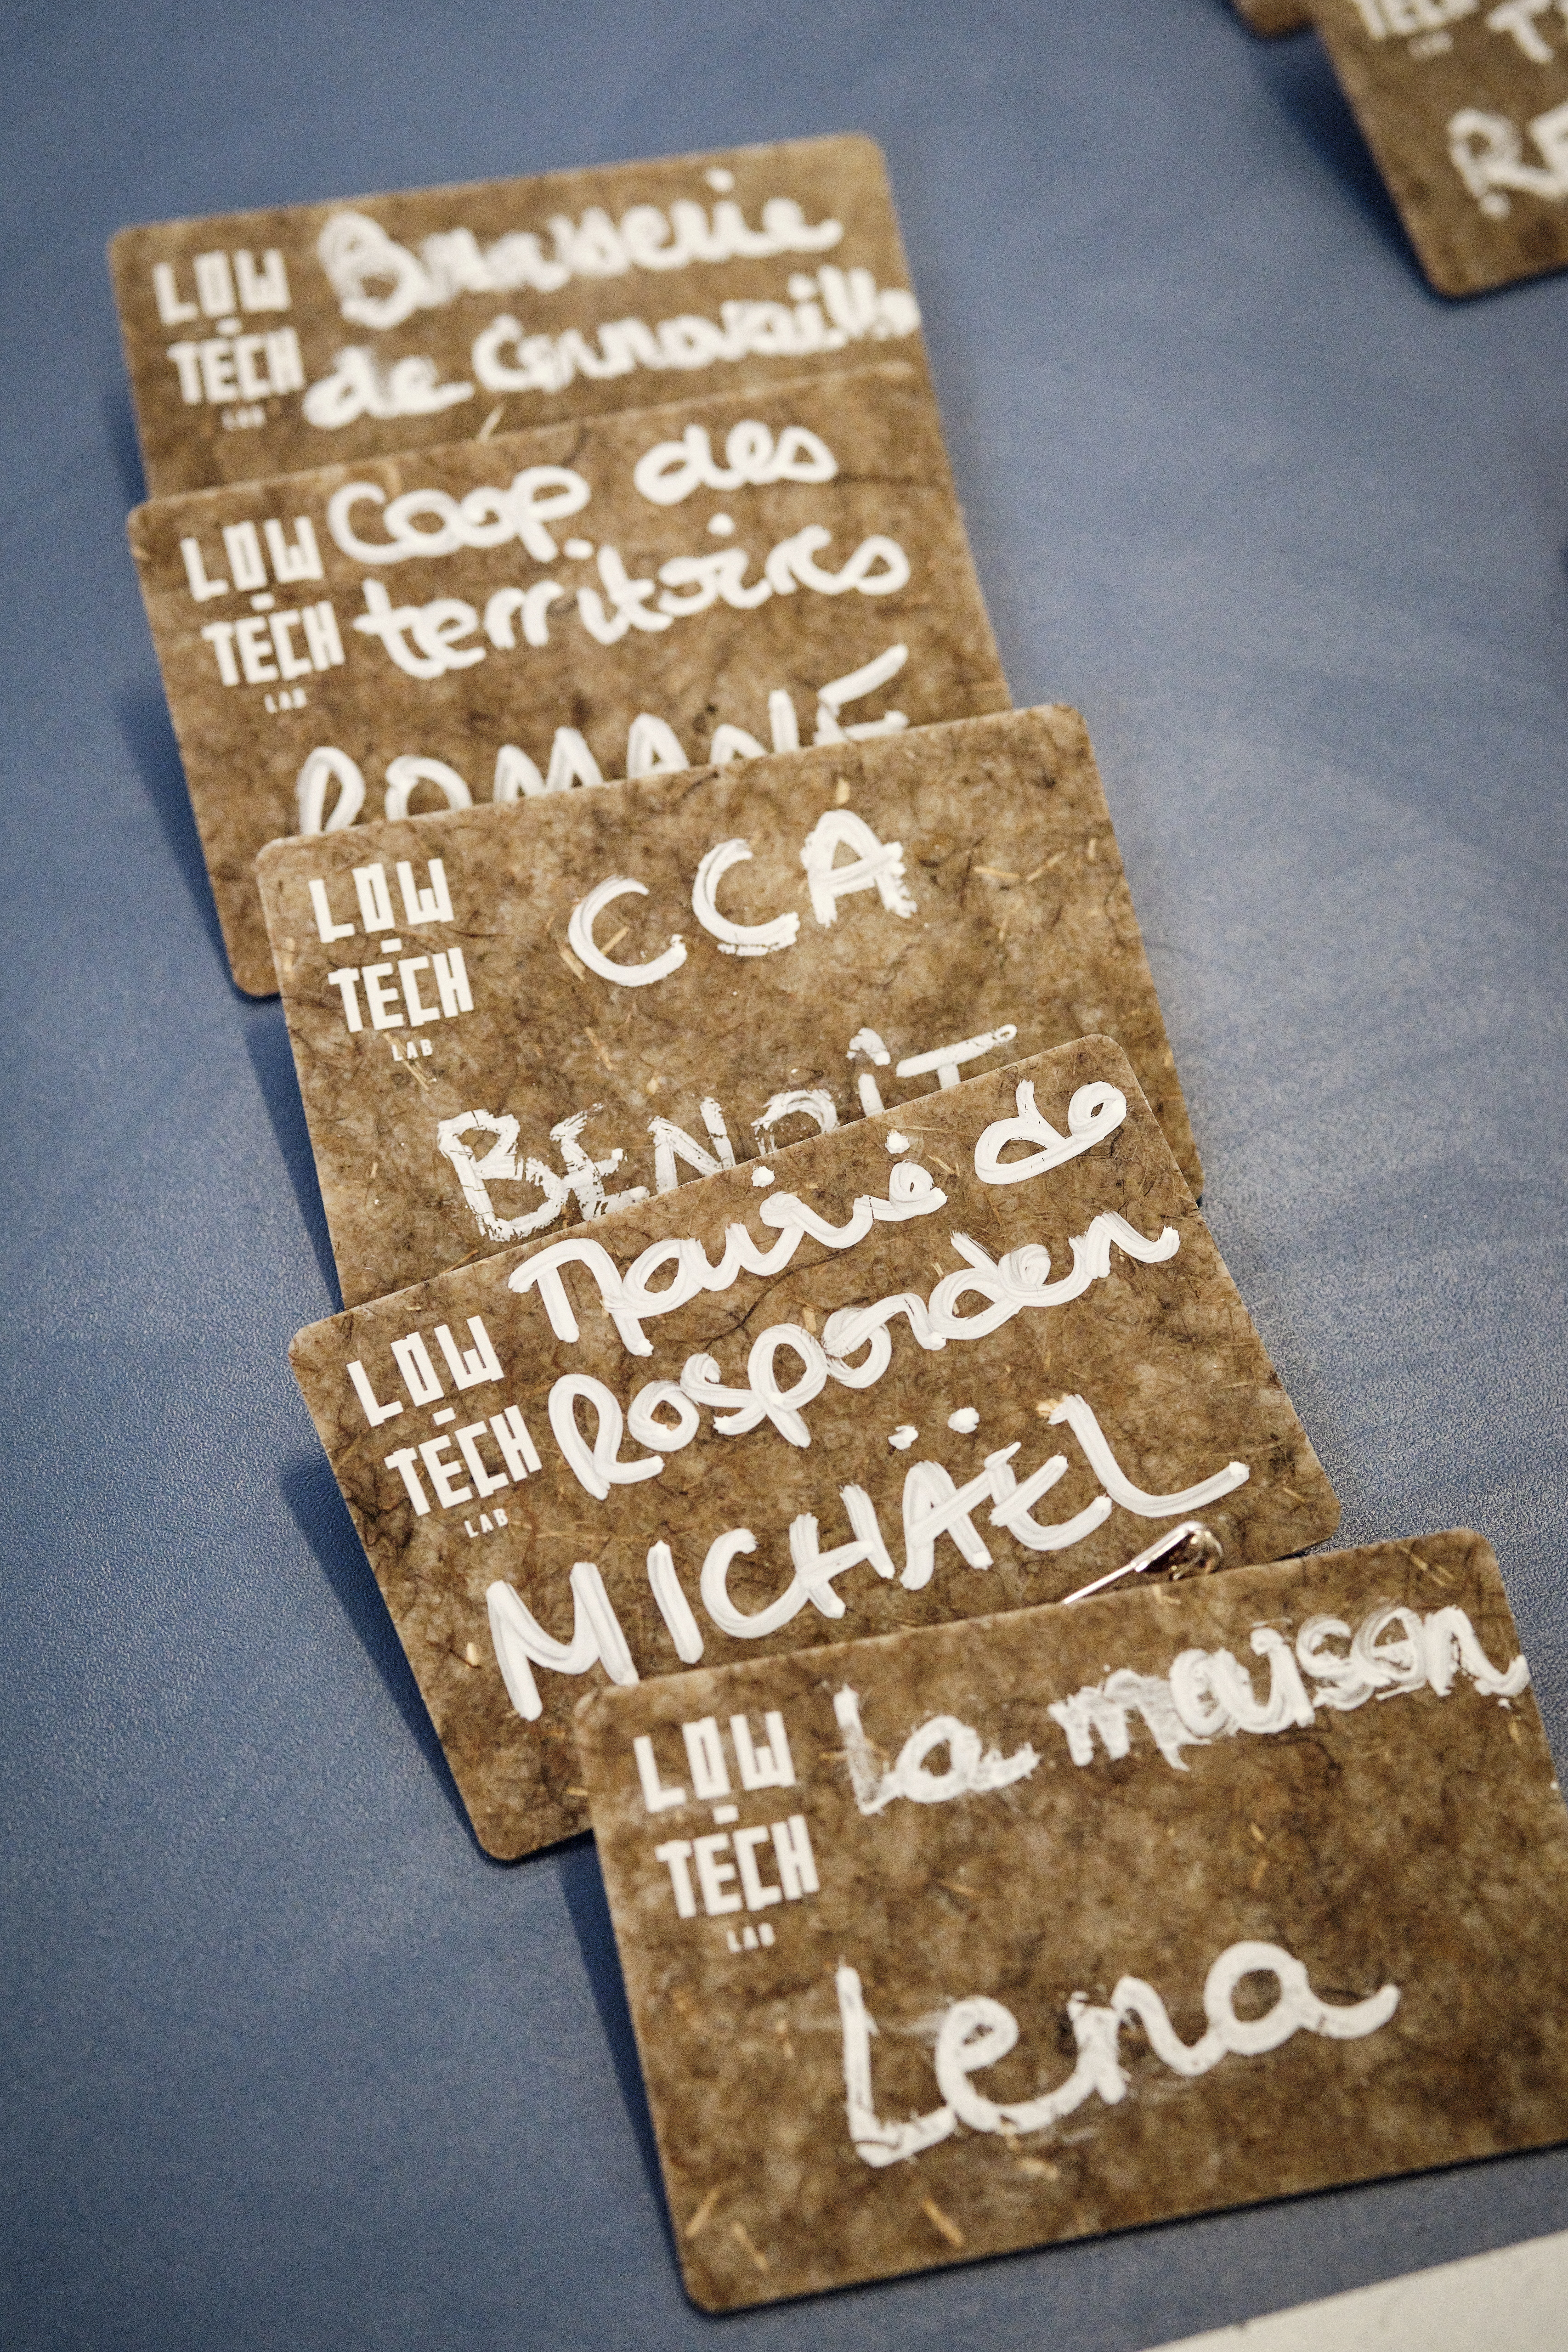 LOW
-
TECH
LAB
Brasserie
de Cornouaille
LOW
-
TECH
LAB
Coop des
territoires
ROMANE
LOW
-
TECH
LAB
CCA
BENOÎT
LOW
-
TECH
LAB
Mairie de
Rosporden
MICHÄEL
LOW
-
TECH
LAB
la maison
Lena
TECH
LAB
RE